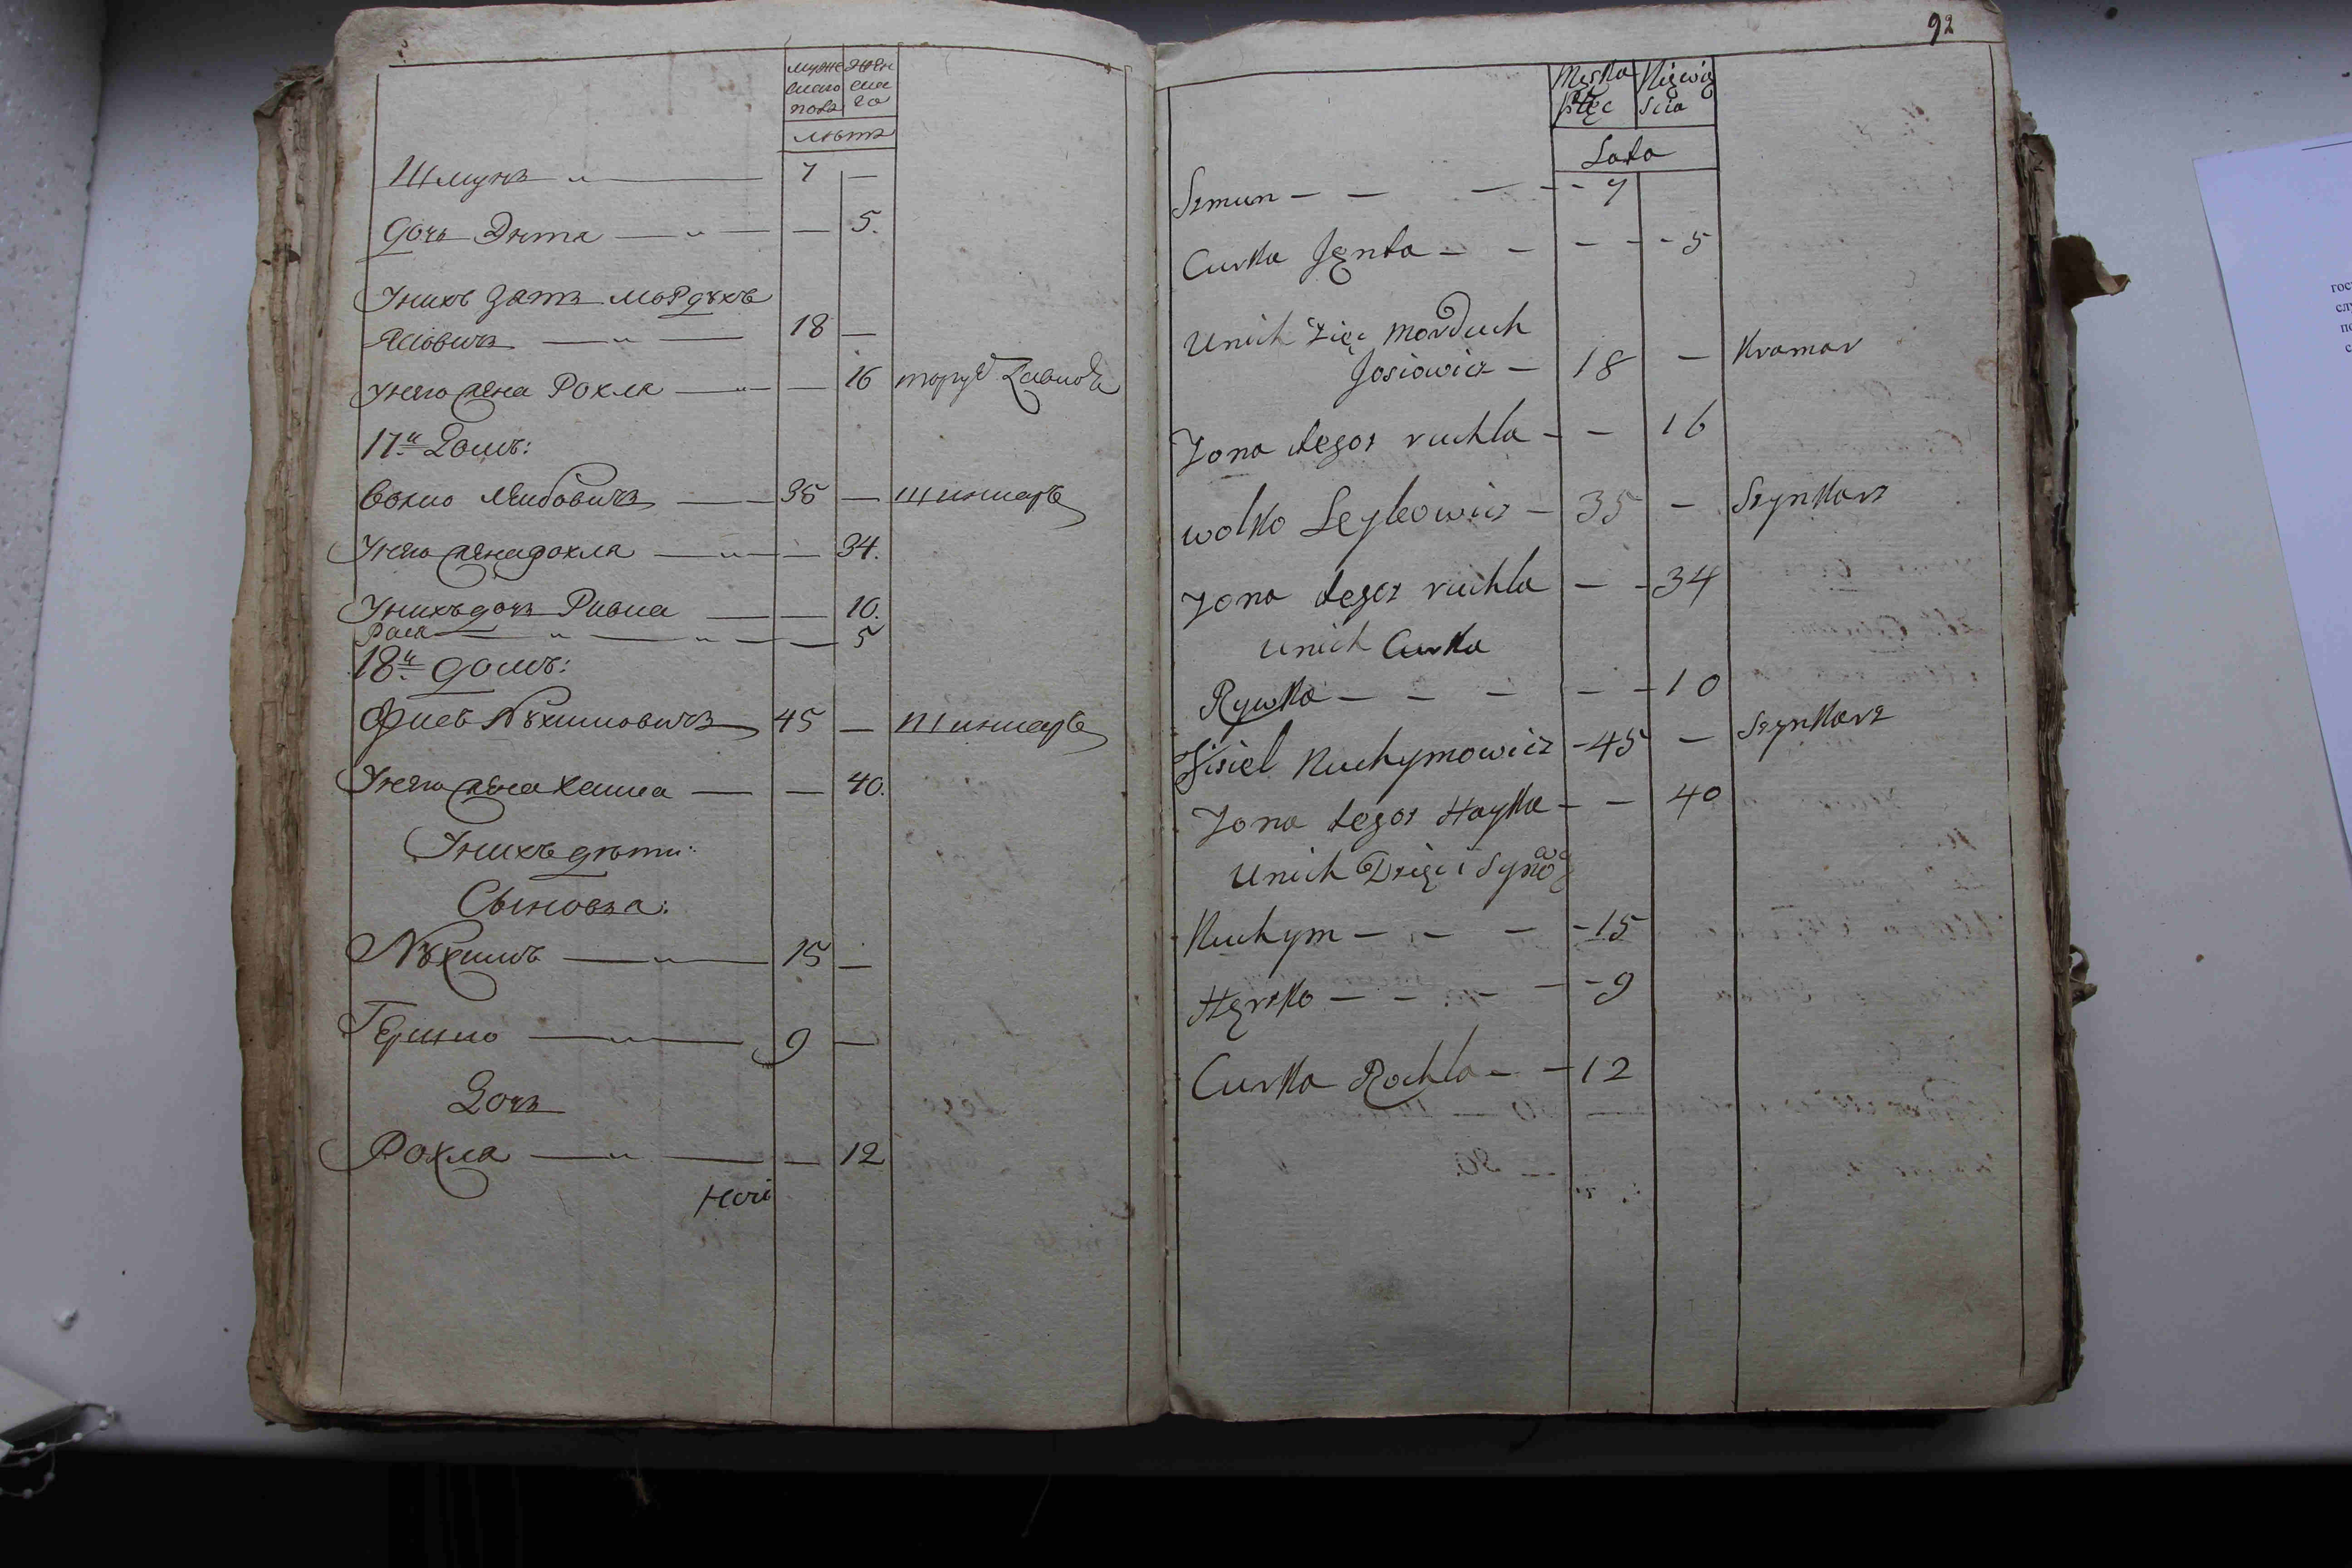 муже жен
скаго ска
пола го
лѣта
Шмунъ 7 —
Дочь Энта — 5.
У нихъ зять Мордухъ
Ясіовичъ 18 —
У него жена Рохля — 16
17й Домъ:
Волко Лейбовичъ 35 — шинкарь
У него жена Рохля — 34.
У нихъ дочь Ривка — 10.
— 5
18й домъ:
Нухимовичъ 45 — шинкарь
У него жена Хайка — 40.
У нихъ дѣти:
Сыновья:
Нухимъ 15 —
Гершко 9 —
Дочь
Рохля — 12
92
Męska Niewia
płec scia
Lata
Szmun — — — — 7
Curka Jęnta — — — — 5
Unich zięc Morduch
Josiowicz — 18 — Kramar
Zona tegoz ruchla — — 16
Wolko Leybowicz — 35 — Szynkarz
Zona tegoz ruchla — — 34
Unich Curka
Rywka — — — — — 10
Fisiel Nuchymowicz — 45 — Szynkarz
Zona tegoz Hayka — — 40
Unich Dzięci Synow
Nuchym — — — — 15
Hęrsko — — — — — 9
Curka Rochla — — 12